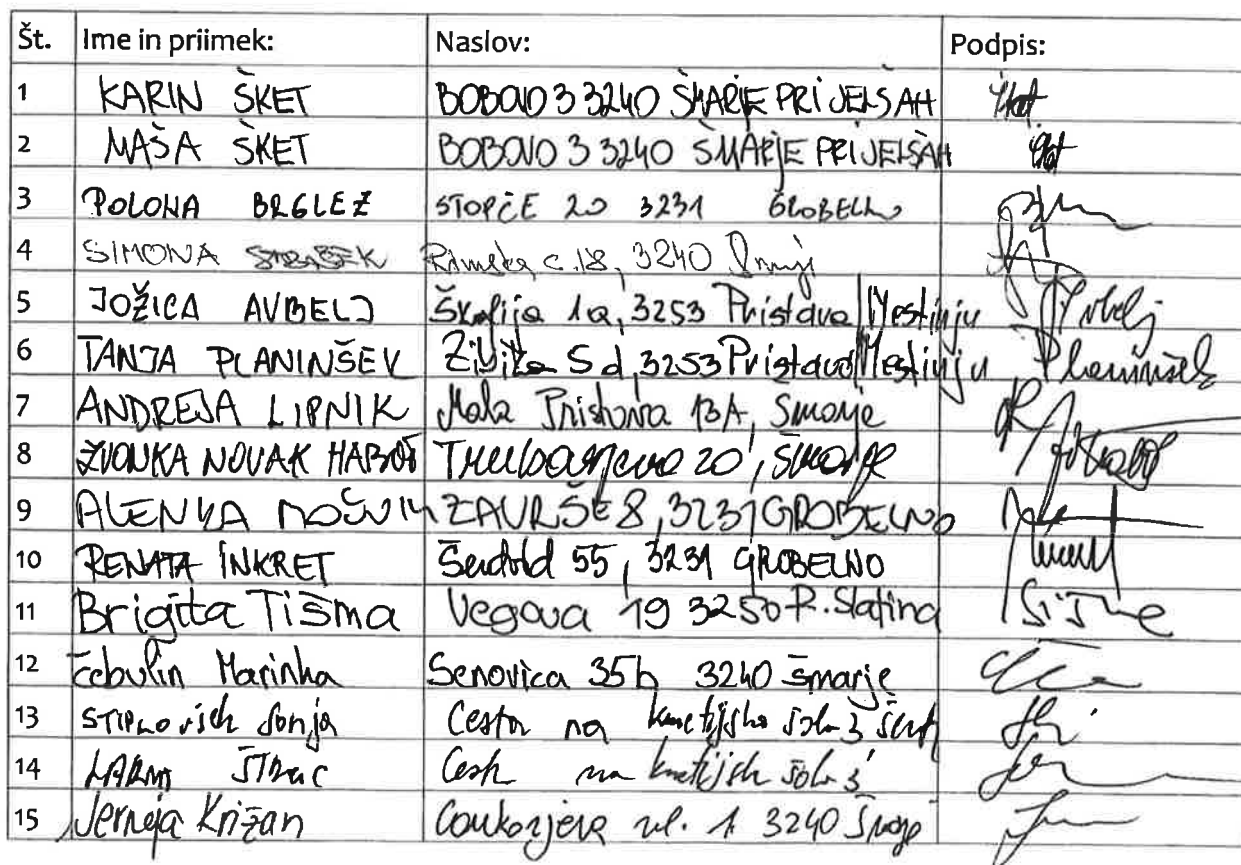 Št. Ime in priimek: Naslov: Podpis:
1 KARIN ŠKET BOBOVO 3 3240 ŠMARJE PRI JELŠAH
2 MAŠA ŠKET BOBOVO 3 3240 ŠMARJE PRI JELŠAH
3 POLONA BRGLEZ STOPČE 20 3231 GROBELNO
4 SIMONA Rimska c. 18, 3240
5 JOŽICA AVBELJ Škofija 1a, 3253 Pristava/Mestinju Avbelj
6 TANJA PLANINŠEK 5d, 3253 Pristava/Mestinju Planinšek
7 ANDREJA LIPNIK Mala Pristava 13A, Šmarje
8 ZVONKA NOVAK 20, Šmarje
9 ALENKA ZAVRŠE 8, 3231 GROBELNO
10 RENATA INKRET 55, 3231 GROBELNO
11 Brigita Tišma Vegova 19 3250 R. Slatina
12 Čebulin Marinka Senovica 35b 3240 Šmarje
13 Sonja Cesta na kmetijsko šolo 3
14 Cesta na kmetijsko šolo 3
15 Jerneja Križan ul. 1 3240